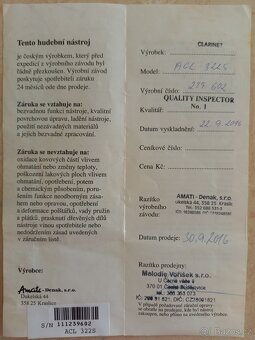 Tento hudební nástroj
je českým výrobkem, který před
expedicí z výrobního závodu byl
řádně přezkoušen. Výrobní závod
poskytuje spotřebiteli záruku
24 měsíců ode dne prodeje.
Záruka se vztahuje na:
bezvadnou funkci nástroje, kvalitní
povrchovou úpravu, ladění nástroje,
použití nezávadných materiálů
a jejich bezvadné zpracování.
Záruka se nevztahuje na:
oxidace kovových částí vlivem
ohmatání nebo změny teploty,
poškození lakových ploch vlivem
ohmatání, otopení, otlučení,
potem a chemickým působením,
poruch funkcí způsobených
neodborným zásahem, opotřebení
a deformování dopadem vady pružin
a plátků, prasknutí dřevěných dílů
nástroje vlivem nesprávného
nebo nedbalého zacházení uvedených
v záručním listě.
Výrobce:
Amati - Denak, s.r.o.
Dukelská 44
358 25 Kraslice
S/N 111239602
ACL 322S
CLARINET
Výrobek:
Model: ACL 322S
Výrobní číslo: 239 602
QUALITY INSPECTOR
No. 1
Kvalitář:
Datum vyskladnění: 22.9.2016
Ceníkové číslo:
Cena Kč:
Razítko
výrobního
závodu:
AMATI - Denak, s.r.o.
Dukelská 44, 358 25 Kraslice
Datum prodeje: 30.9.2016
Razítko prodejny:
Melodie Voříšek s.r.o.
U Černé věže
370 01 České Budějovice